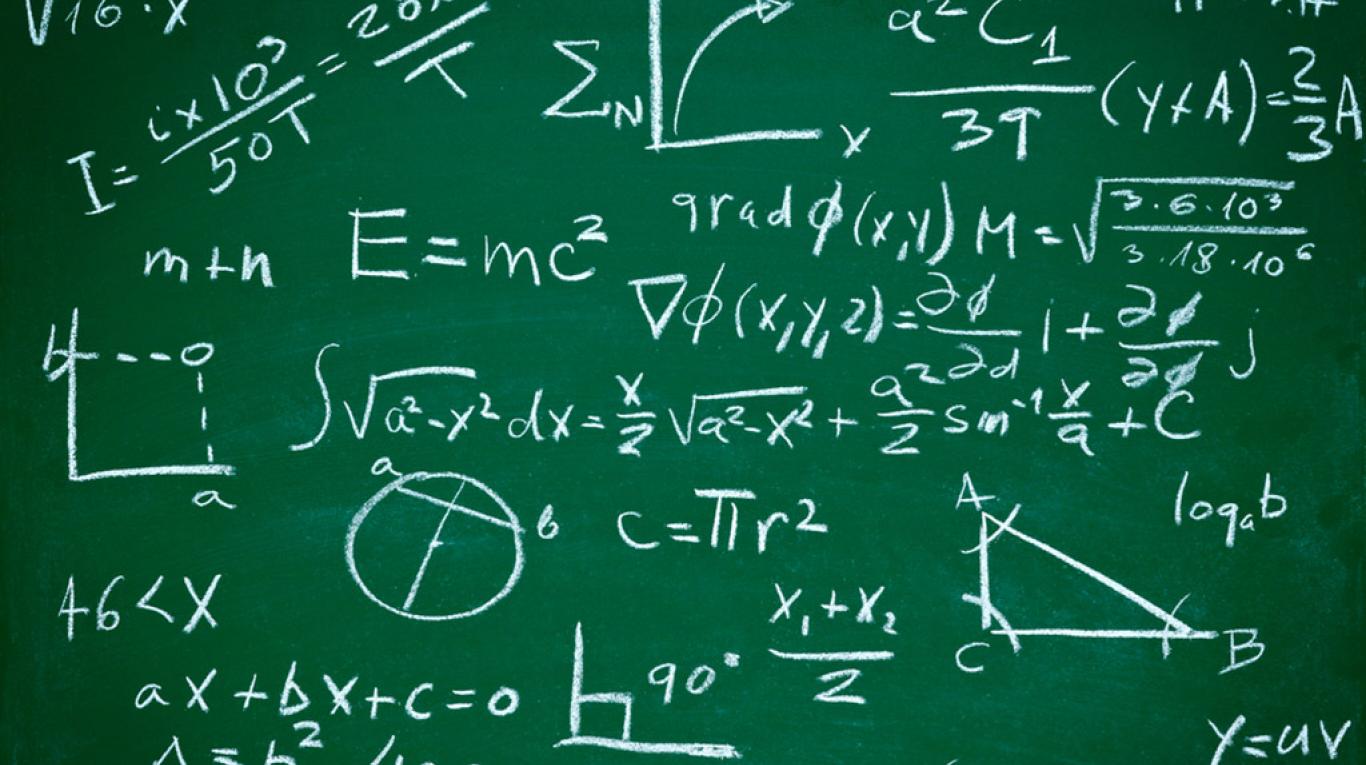 √16·x
I = ix10³/50T = 20x/T
Σ_N
x
a²C₁/3T (y+A) = 2/3 A
m+n
E = mc²
grad ϕ(x,y) M = √(3·6·10³/3·18·10⁶)
∇ϕ(x,y,z) = ∂ϕ/∂d i + ∂ϕ/∂ϕ j
b
a
∫√a²-x² dx = x/2 √a²-x² + a²/2 sin⁻¹ x/a + C
a
b
c = πr²
A
C
B
log_a b
+6 < x
ax + bx + c = 0
90°
x₁+x₂/2
y = uv